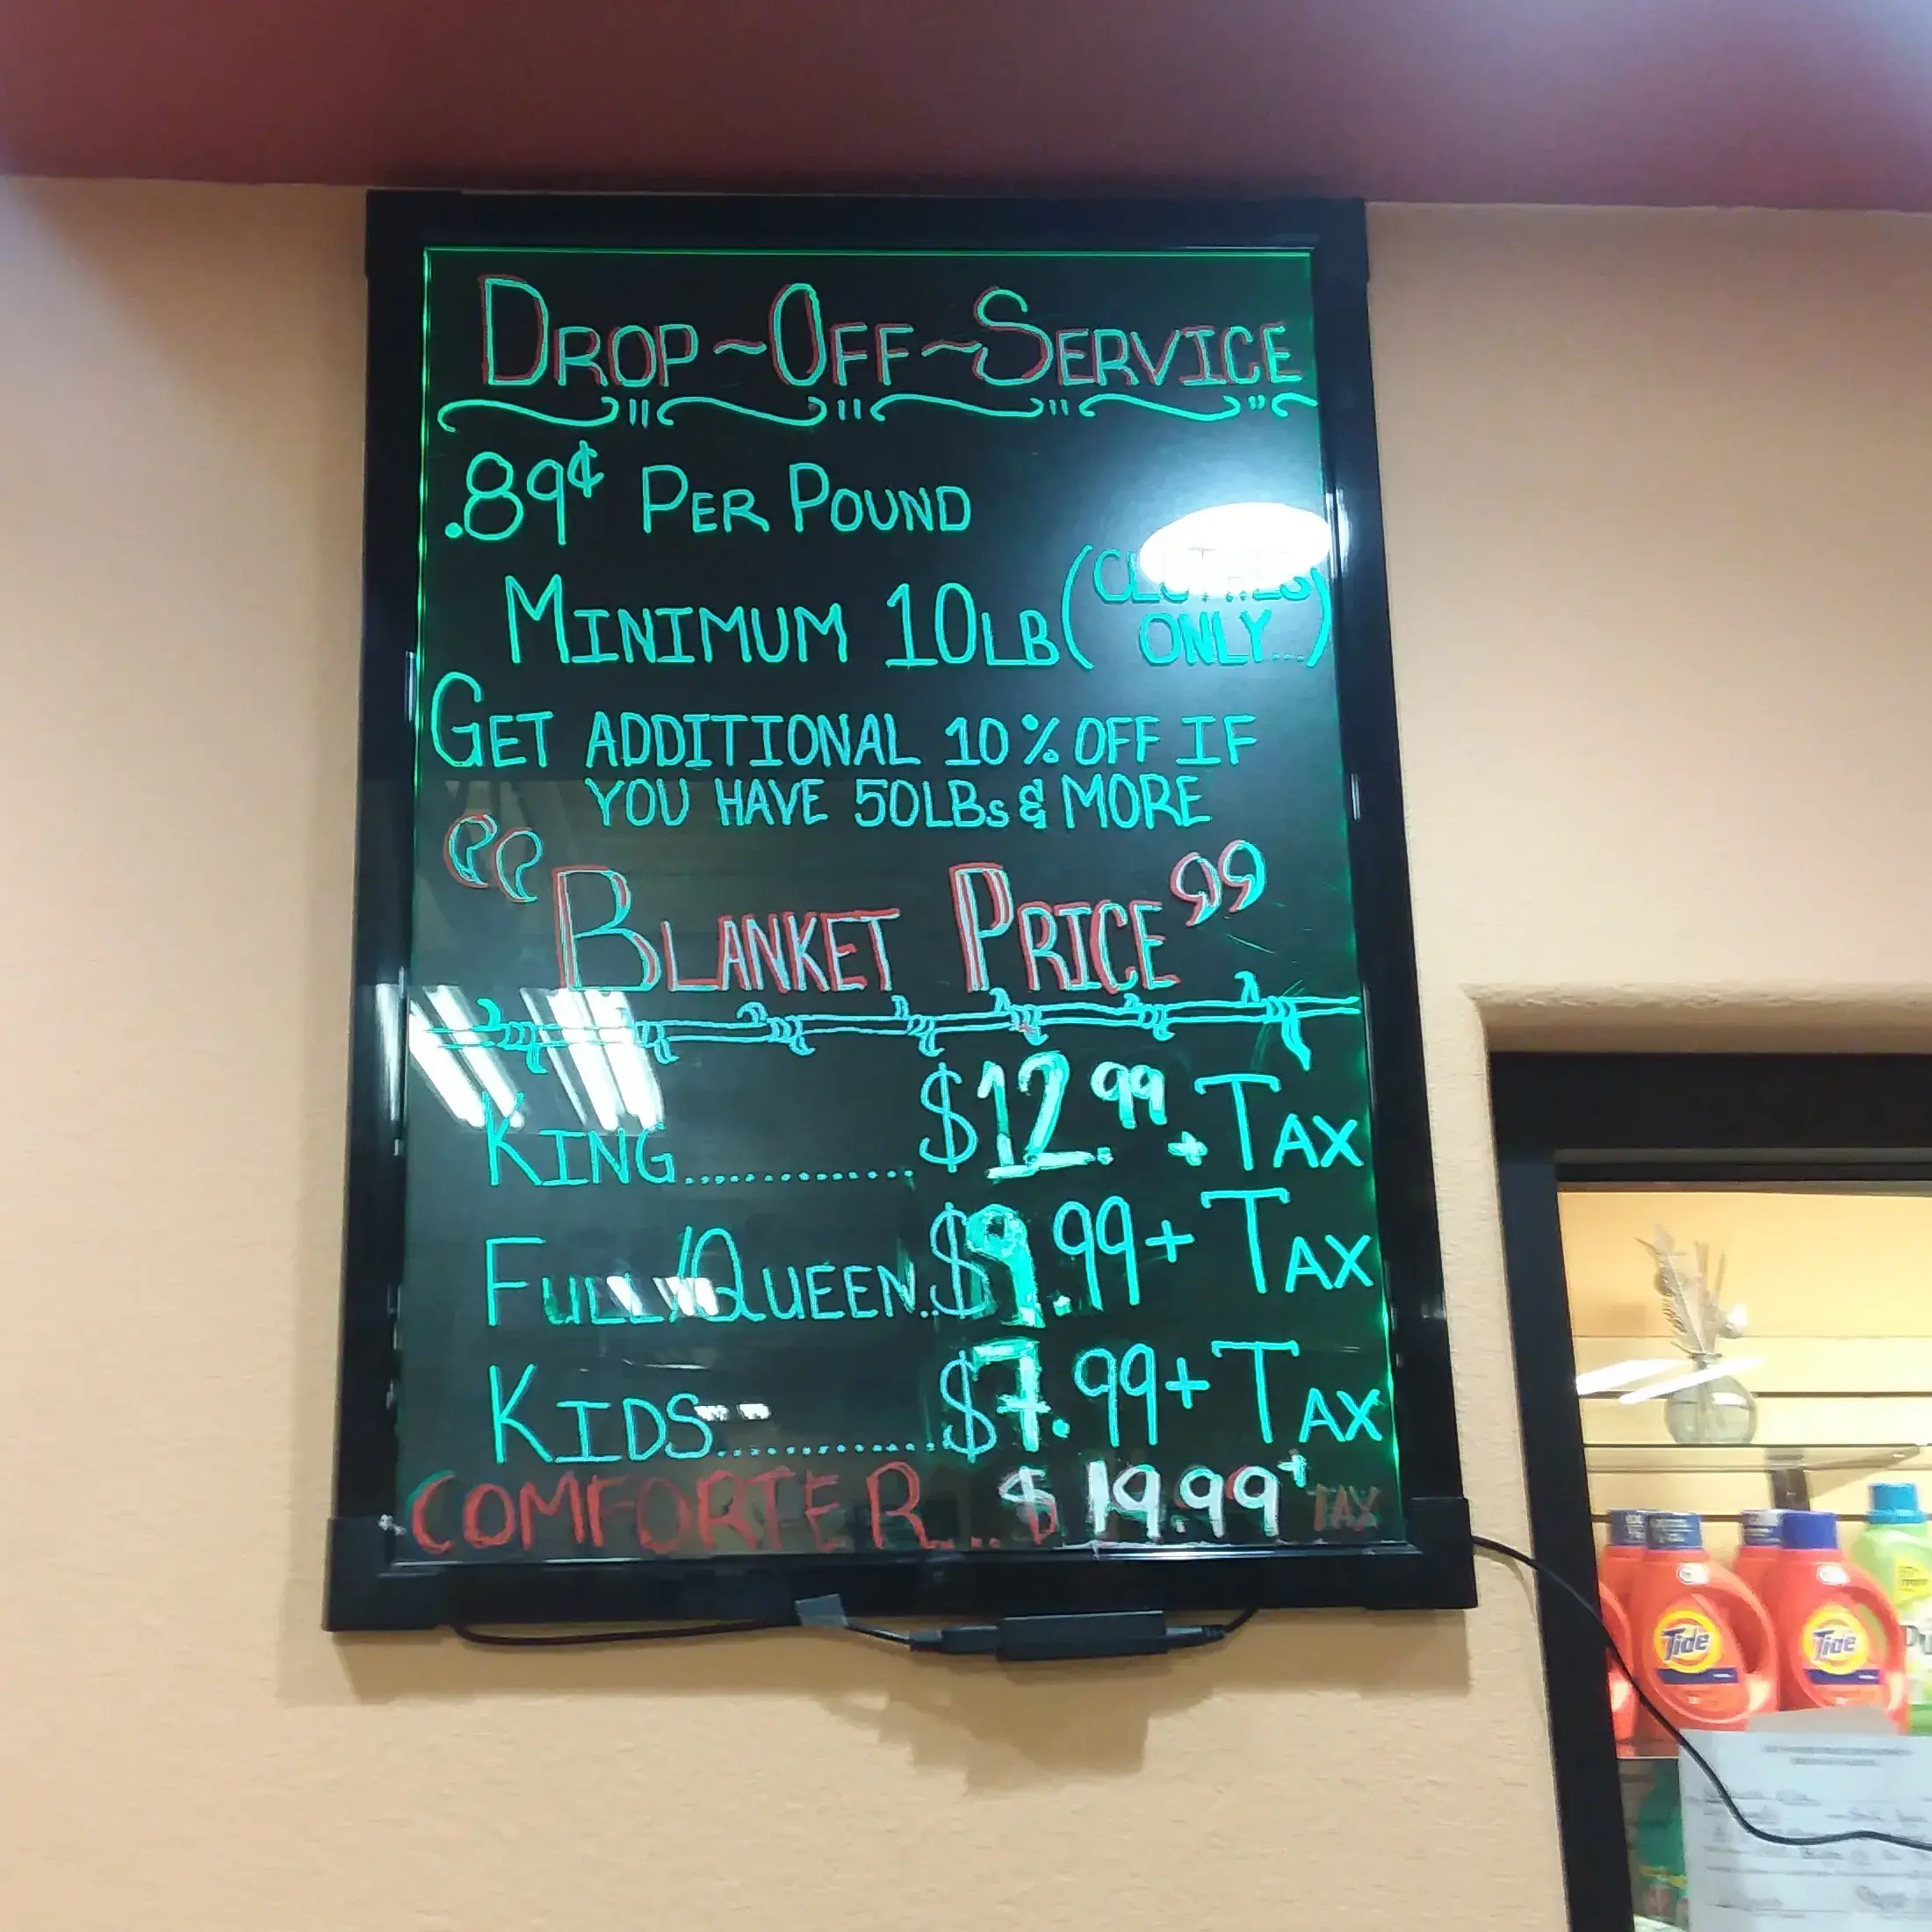 DROP~OFF~SERVICE
.89¢ PER POUND
MINIMUM 10LB (CLOTHES
ONLY...)
GET ADDITIONAL 10% OFF IF
YOU HAVE 50LBs & MORE
“BLANKET PRICE”
KING.............$12.99 + TAX
FULL/QUEEN..$9.99 + TAX
KIDS..............$7.99 + TAX
COMFORTER...$19.99+ TAX
Tide
Tide